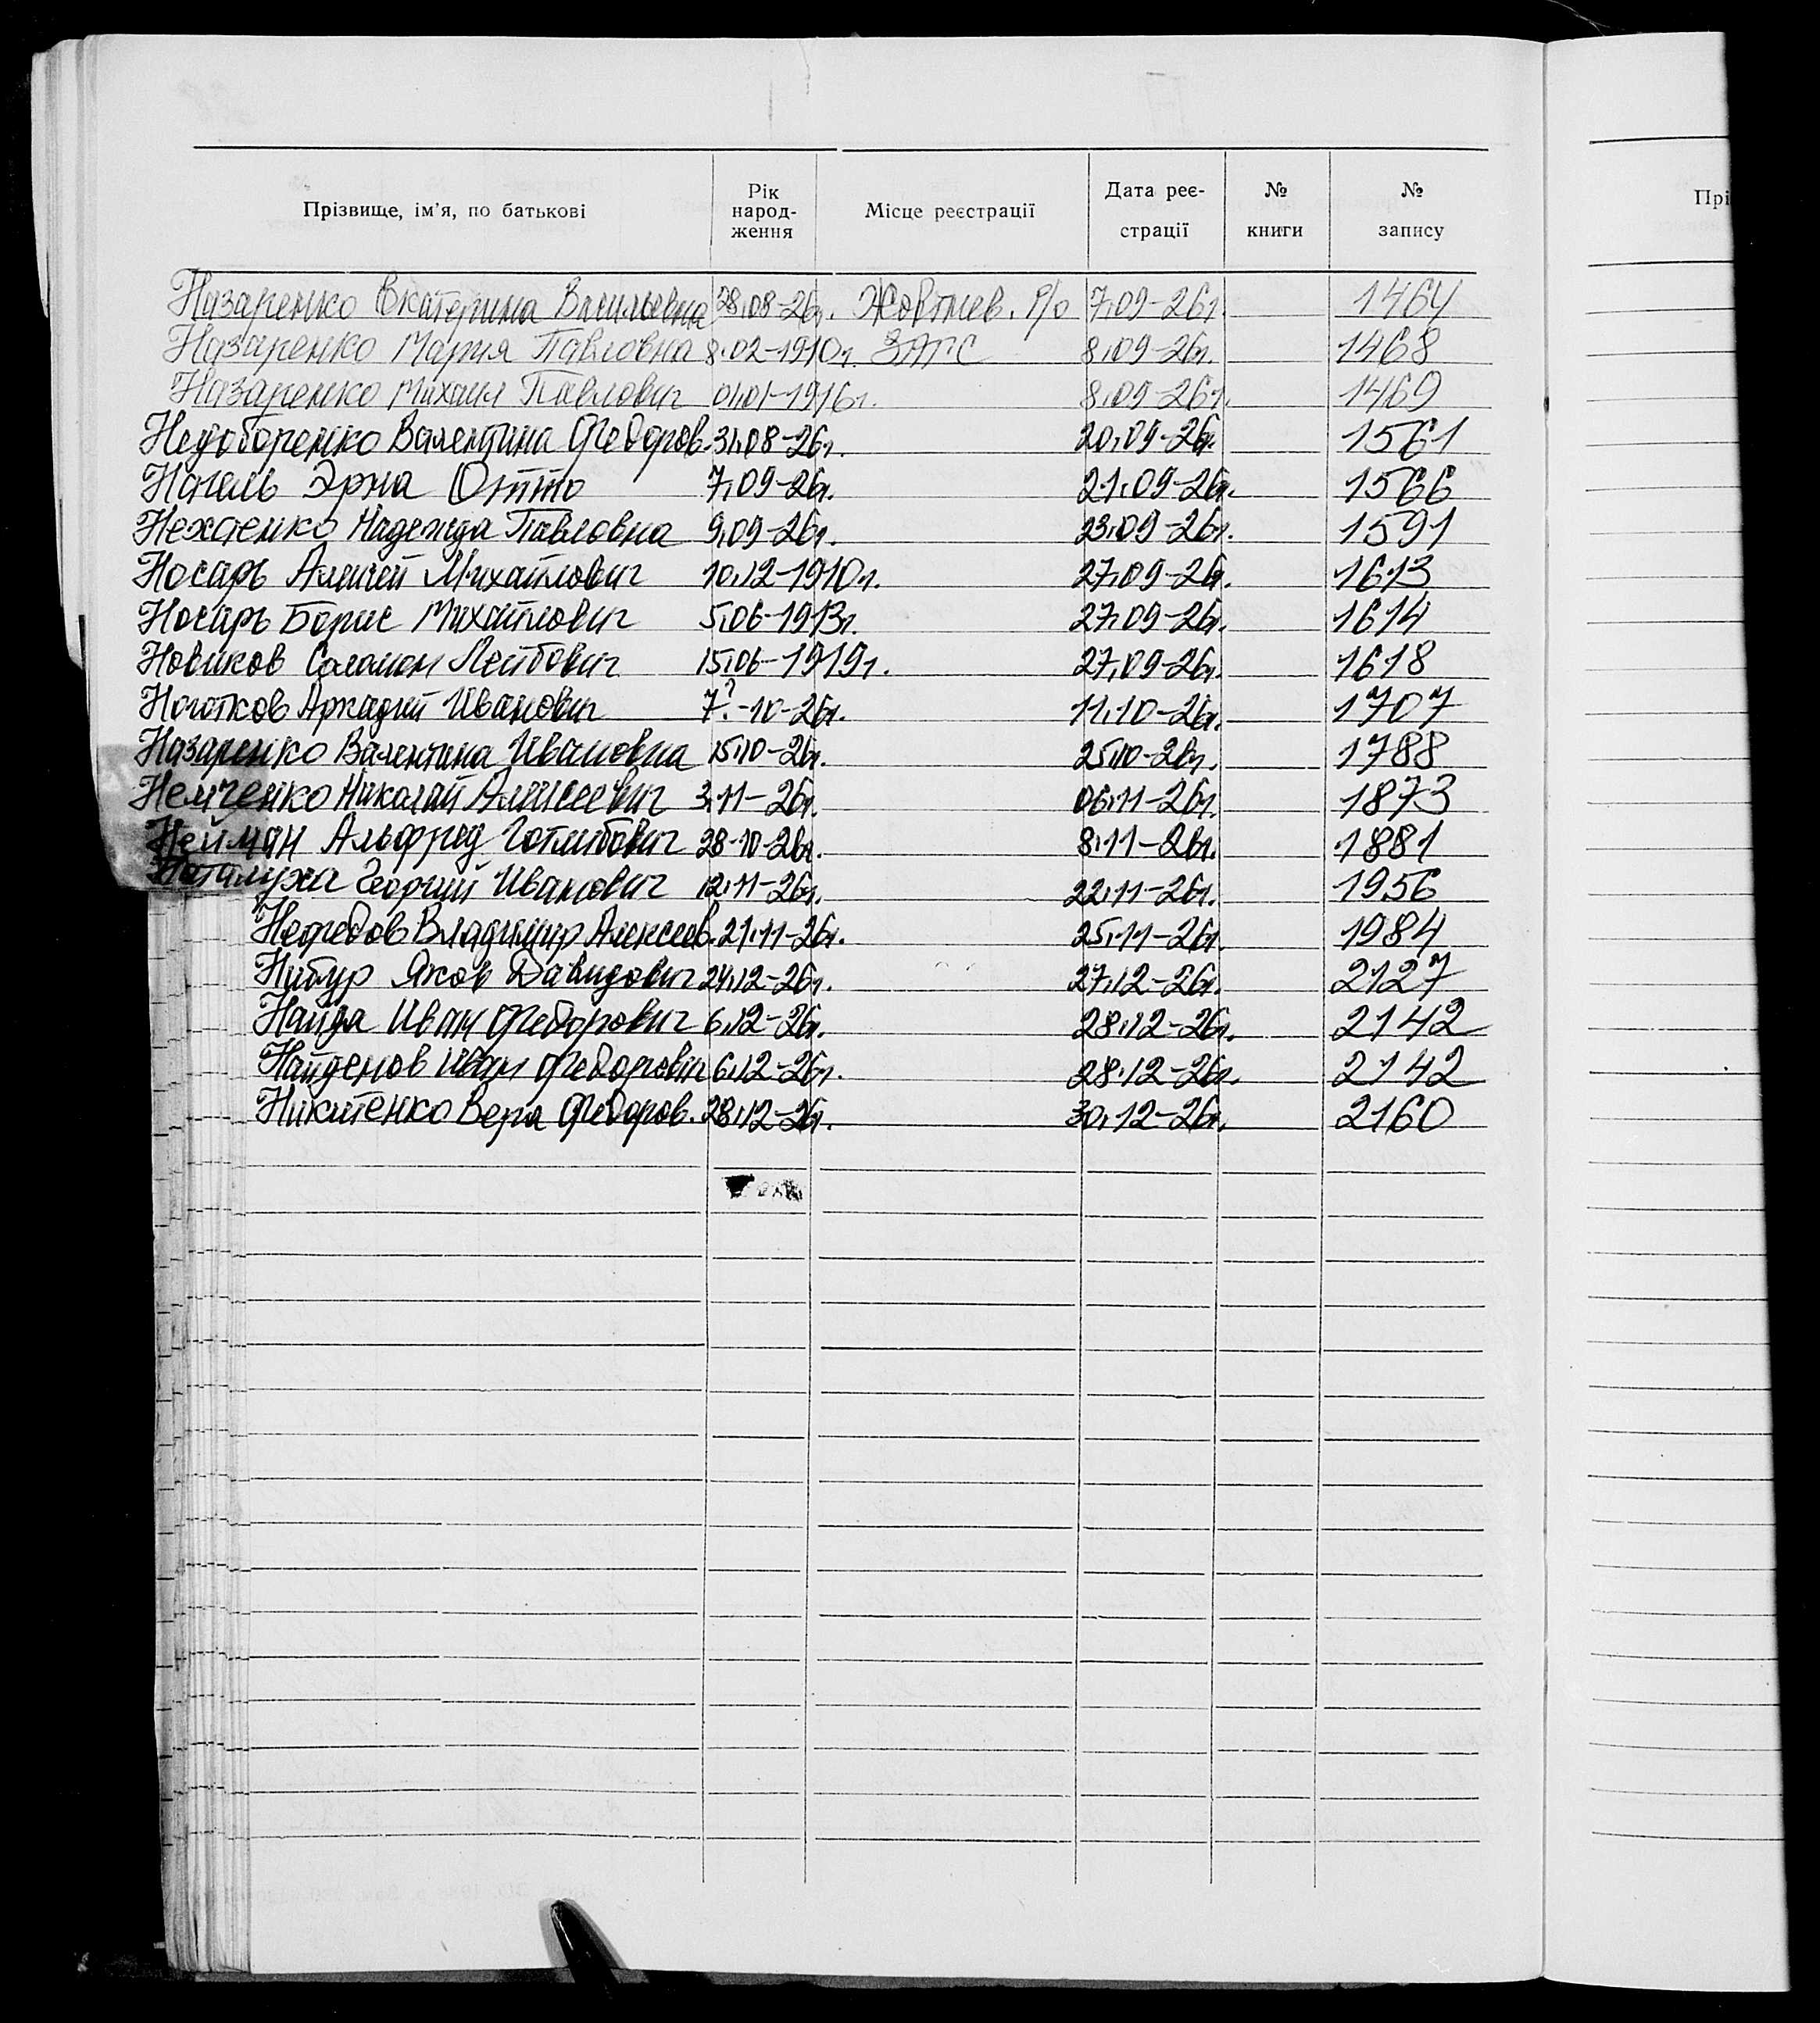 Прізвище, ім'я, по батькові Рік народ- ження Місце реєстрації Дата реє- страції № книги № запису
Прі
Назаренко Екатерина Васильевна 28.08-26г. Жовтнев. Р/о 7.09-26г. 1464
Назаренко Мария Павловна 8.02-1910г. ЗАГС 8.09-26г. 1468
Назаренко Михаил Павлович 01.01-1916г. 8.09-26г. 1469
Недоборенко Валентина Федоров. 31.08-26г. 20.09-26г. 1561
Нагель Эрна Отто 7.09-26г. 21.09-26г. 1566
Нехаенко Надежда Павловна 9.09-26г. 23.09-26г. 1591
Носарь Алексей Михайлович 10.12-1910г. 27.09-26г. 1613
Носарь Борис Михайлович 5.06-1913г. 27.09-26г. 1614
Новиков Соломон Лейбович 15.06-1919г. 27.09-26г. 1618
Ноготков Аркадий Иванович 7?-10-26г. 11.10-26г. 1707
Назаренко Валентина Ивановна 15.10-26г. 25.10-26г. 1788
Немченко Николай Алексеевич 3.11-26г. 06.11-26г. 1873
Нейман Альфред Готлибович 28-10-26г. 8.11-26г. 1881
Наталуха Георгий Иванович 12.11-26г. 22.11-26г. 1956
Нефедов Владимир Алексеев. 21.11-26г. 25.11-26г. 1984
Нибур Яков Давидович 24.12-26г. 27.12-26г. 2127
Найда Иван Федорович 6.12-26г. 28.12-26г. 2142
Найденов Иван Федорович 6.12-26г. 28.12-26г. 2142
Никитенко Вера Федоров. 28.12-26г. 30.12-26г. 2160